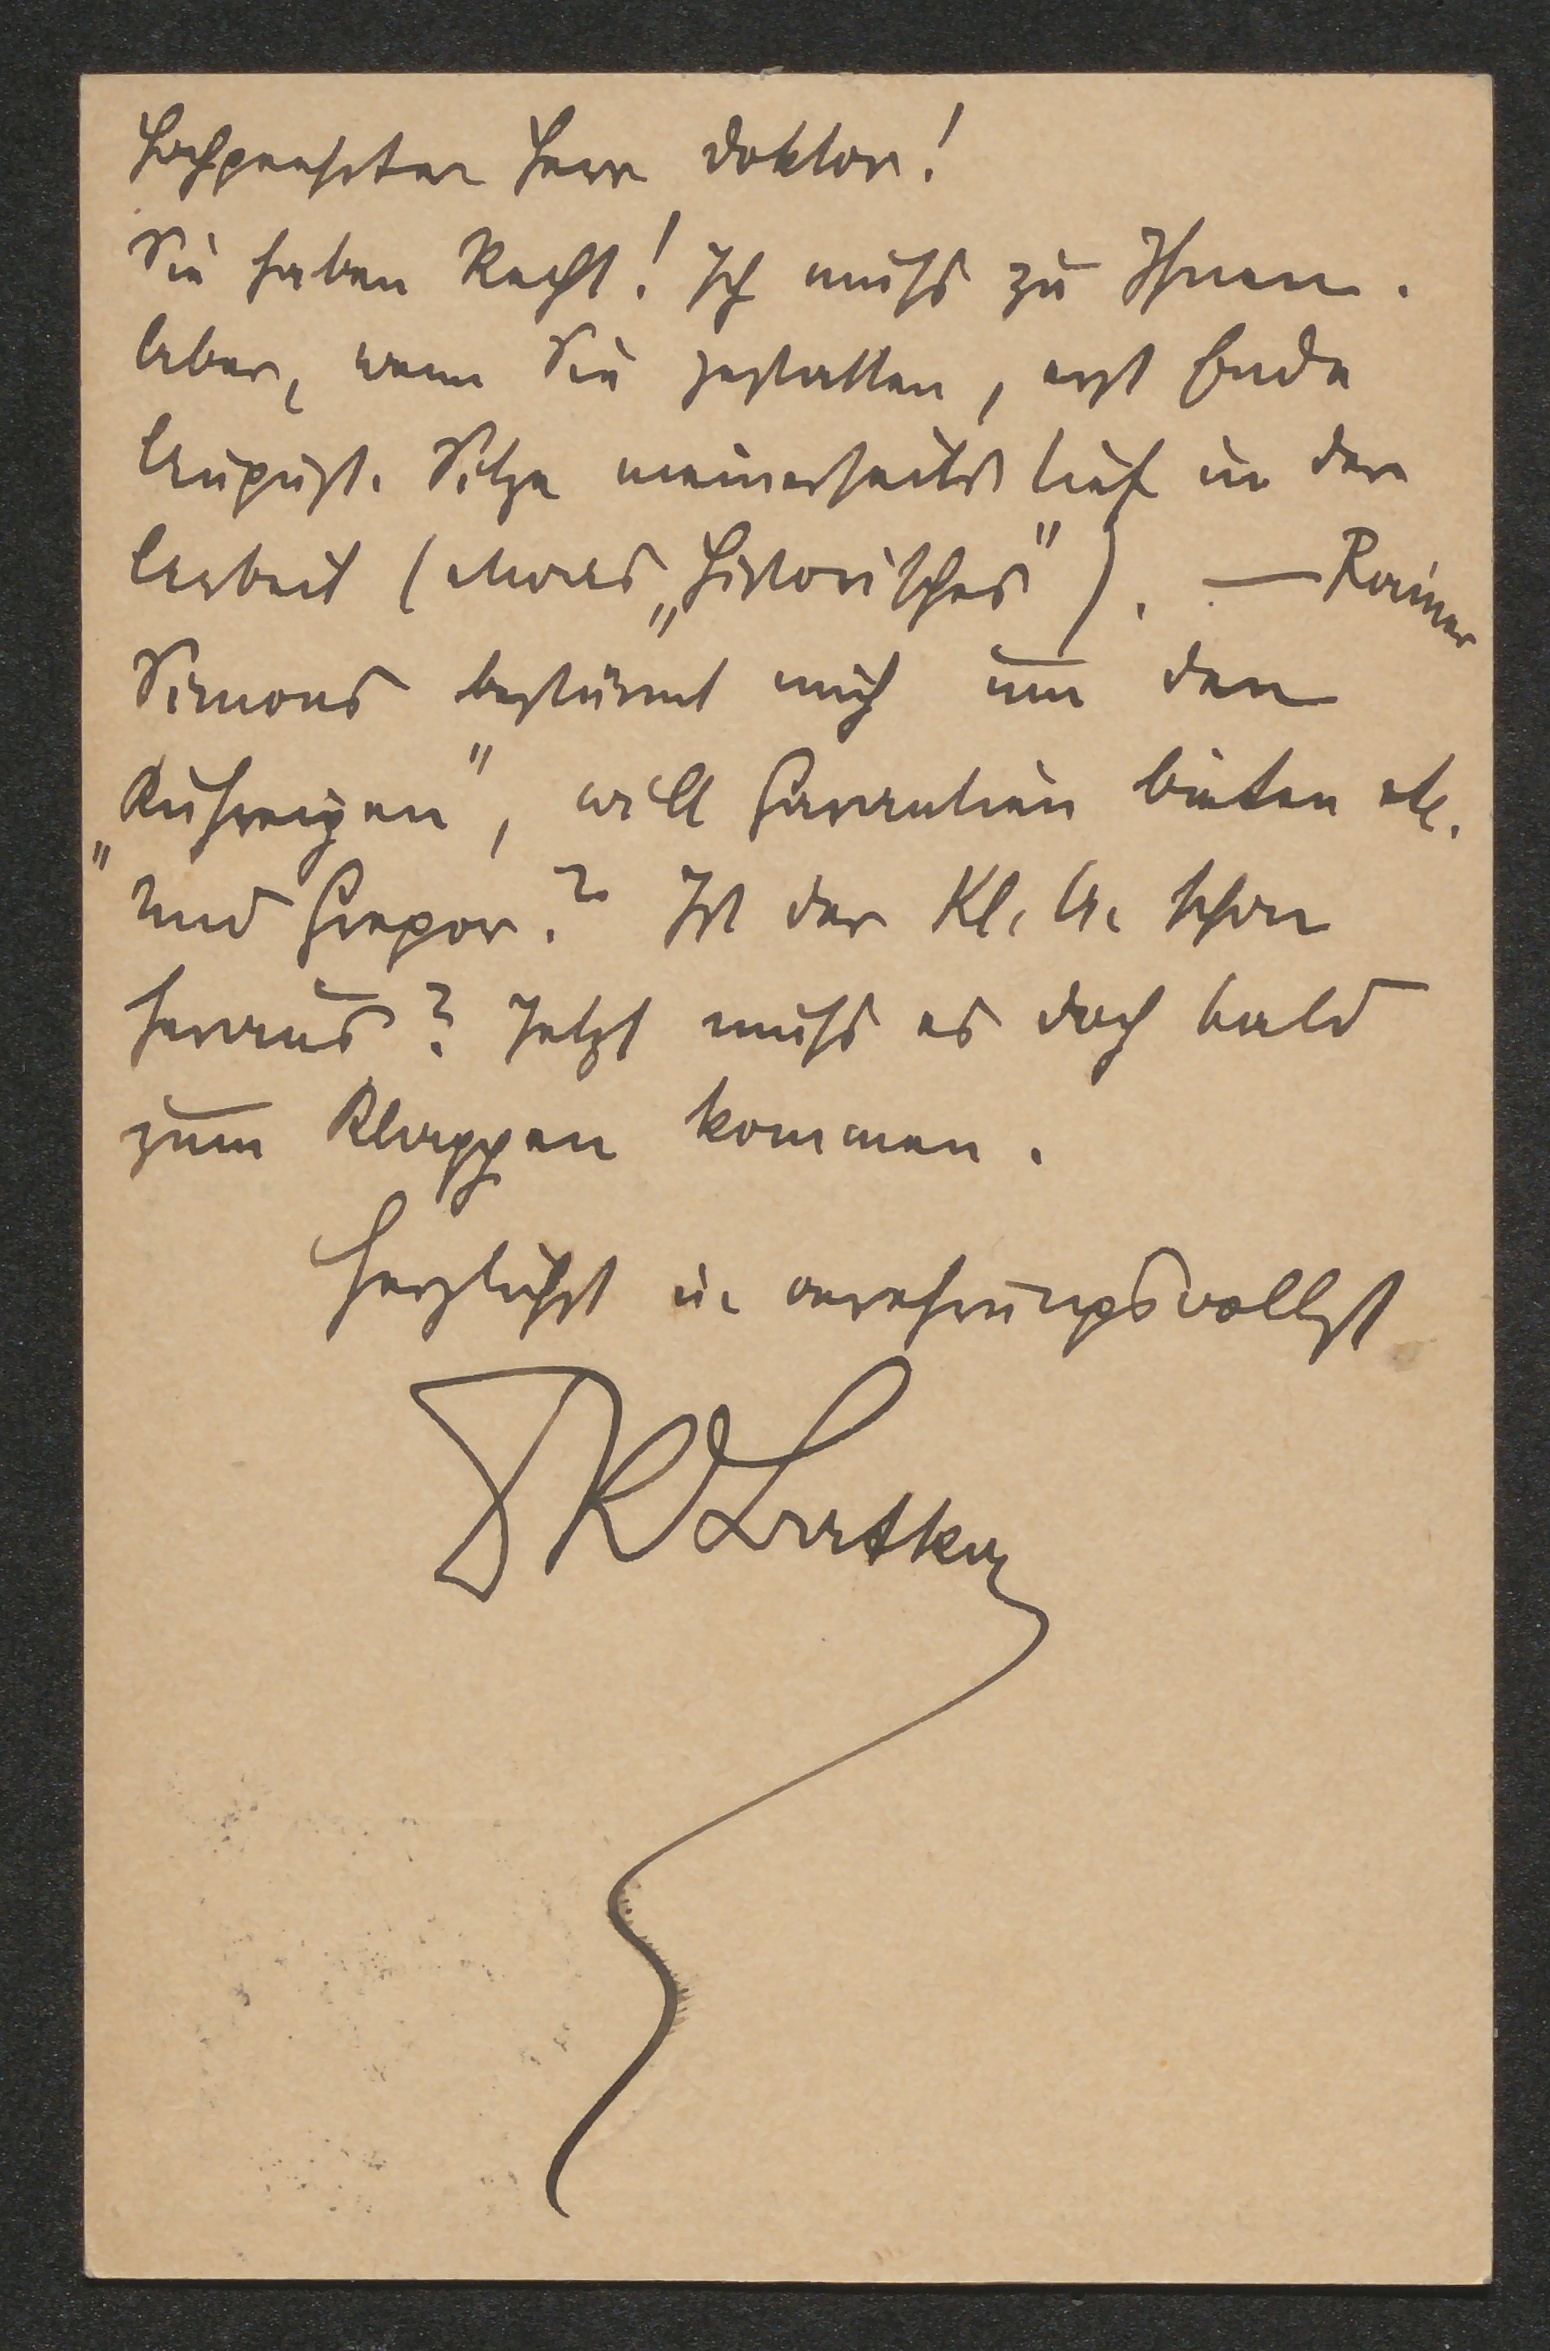 Hochgeehrter Herr Doktor!
Sie haben Recht! Ich muß zu Ihnen.
Aber, wenn Sie gestatten, erst Ende
August. Sitze meinerseits tief in der
Arbeit (etwas „Historisches“). — Rainer
Simons bestürmt mich um den
„Kuhreigen“, will Garantien bieten etc.
Und Gregor? Ist der Kl. A. schon
heraus? Jetzt muß es doch bald
zum Klappen kommen.
Herzlichst u. verehrungsvollst
DRBatka